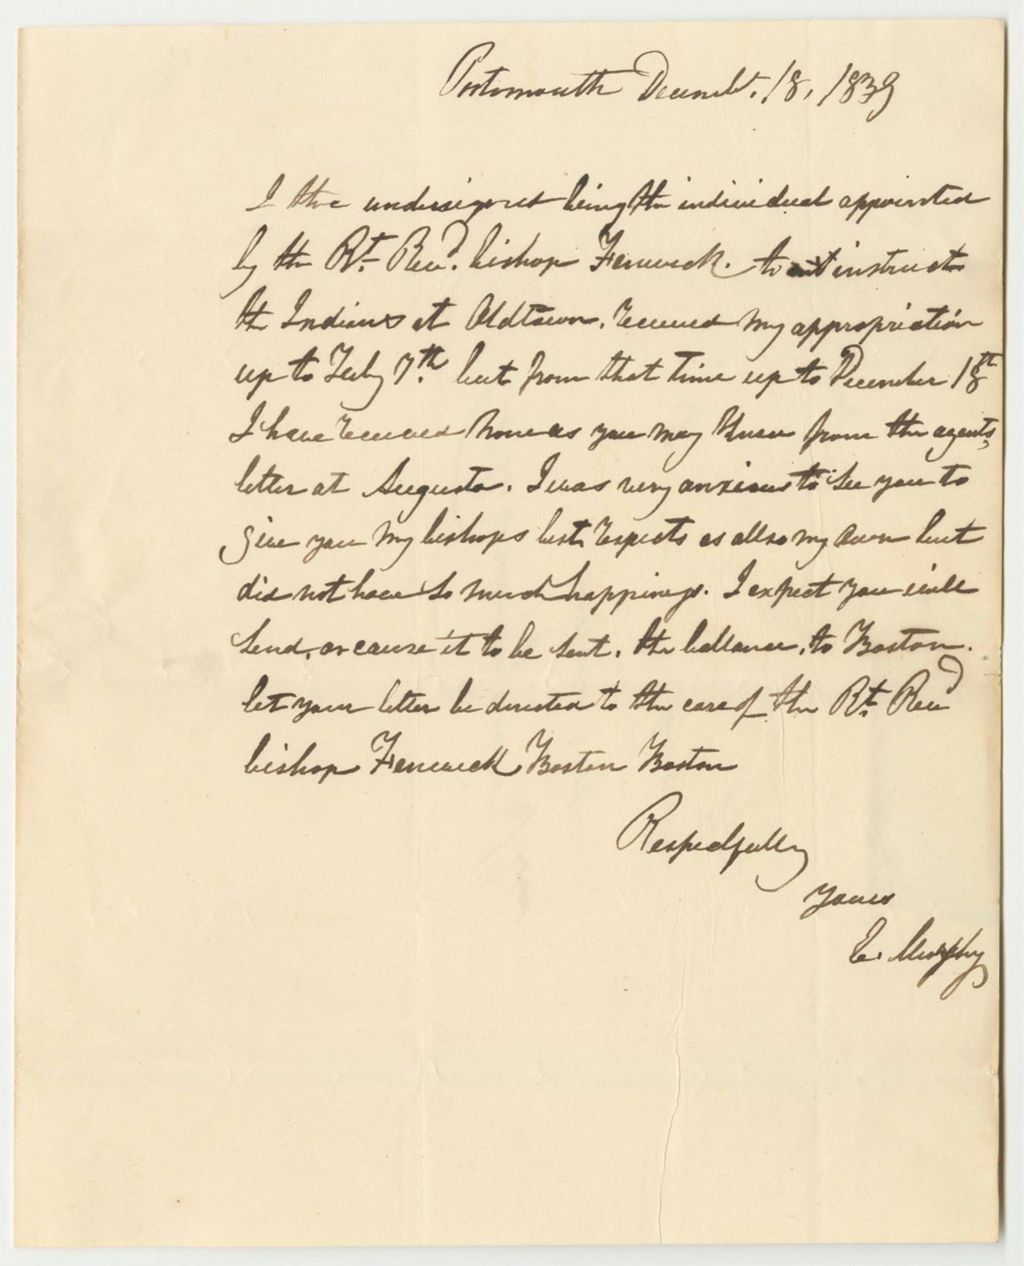 Portsmouth Decemb. 18, 1839
I the undersigned being the individual appointed
by the Rt. Revd. bishop Fenwick. to instruct
the Indians at Oldtown, received my appropriation
up to July 7th. but from that time up to December 18th
I have received none as you may know from the agents,
letter at Augusta. I was very anxious to see you to
give you my bishops best respects as allso my own but
did not have so much happiness. I expect you will
send, or cause it to be sent, the ballance, to Boston.
let your letter be directed to the care of the Rt. Revd
bishop Fenwick Boston Boston
Respectfully
yours
E. Murphy